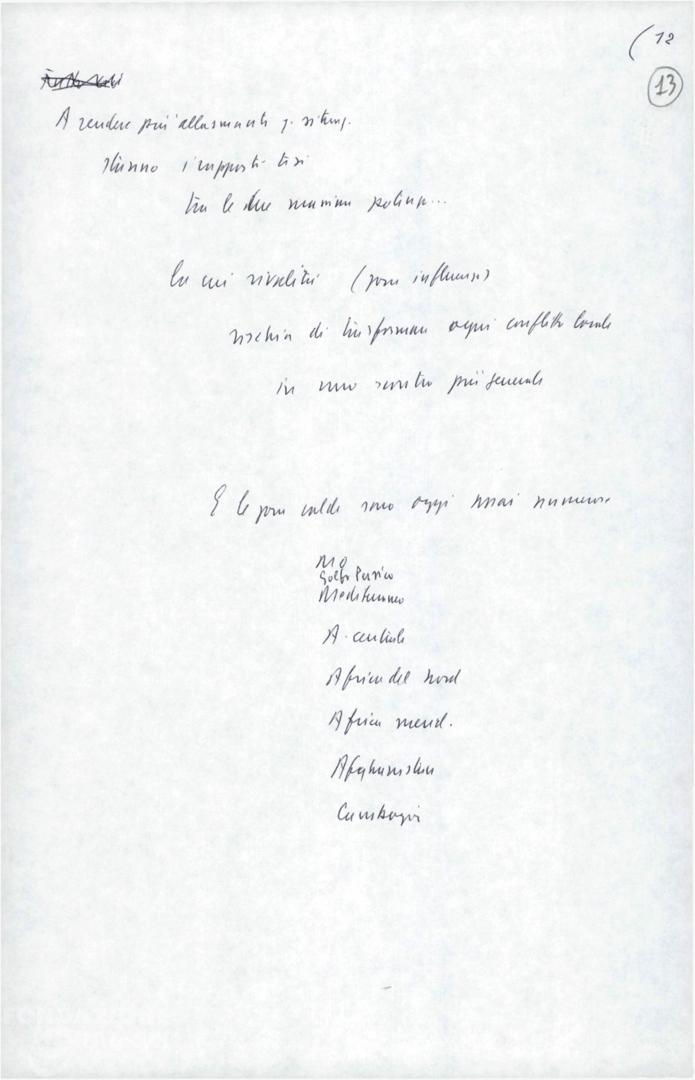 (12
13
A rendere più allarmante q. situaz.
stanno i rapporti tesi
tra le due massime potenze...
la cui rivalità (zone influenza)
rischia di trasformare ogni conflitto locale
in uno scontro più generale
E le zone calde sono oggi assai numerose
MO
Golfo Persico
Mediterraneo
A. centrale
Africa del Nord
Africa merid.
Afghanistan
Cambogia